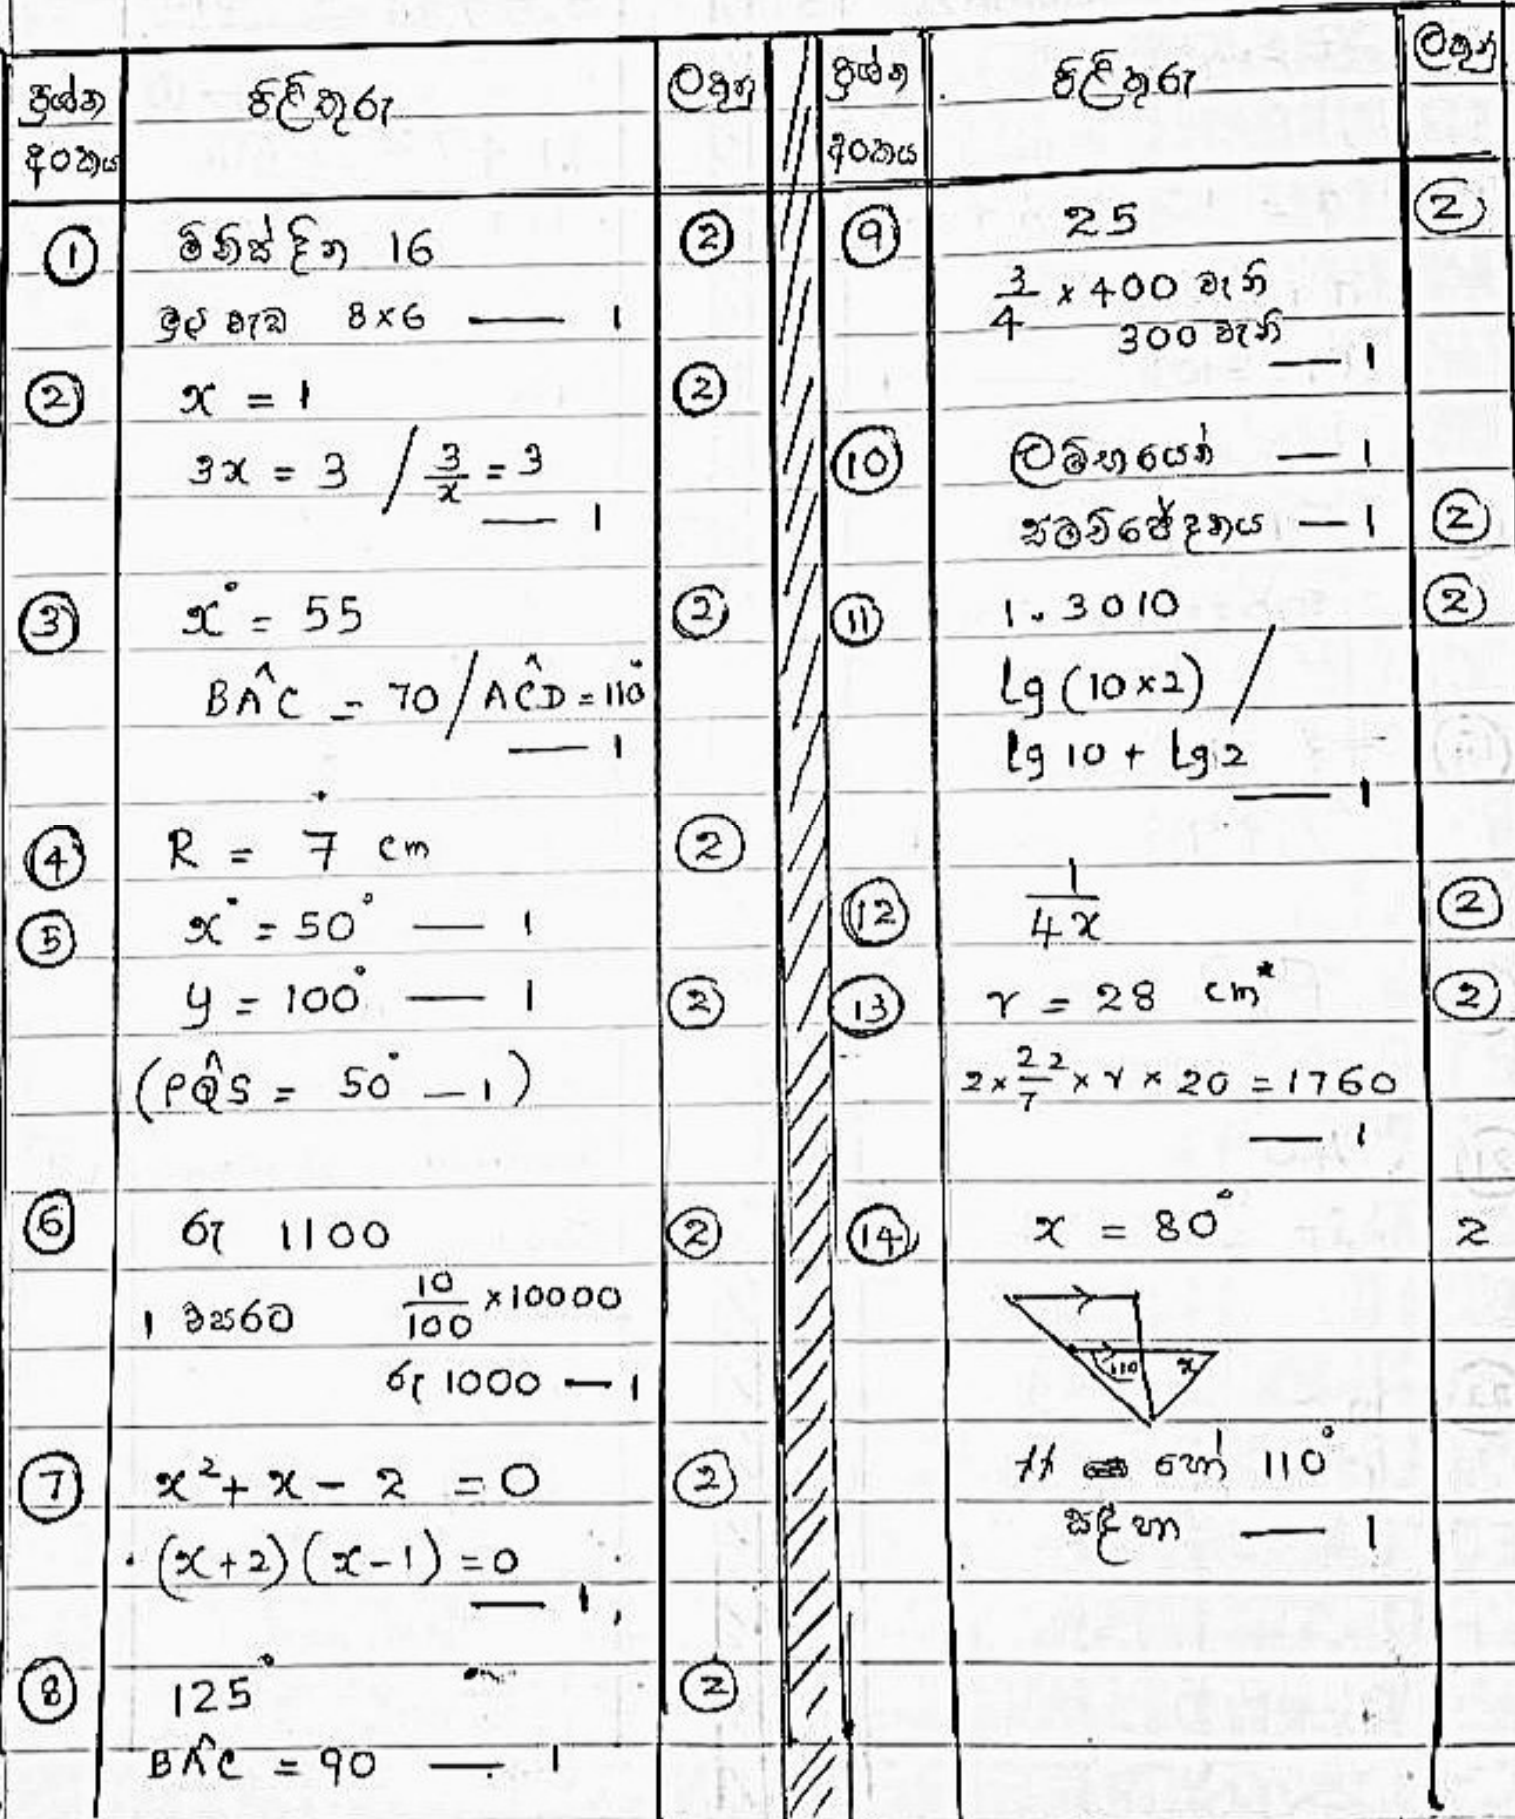 ප්‍රශ්න
අංකය
පිළිතුරු
ලකුණු
① මිනිස් දින 16 ②
මුළු වැඩ 8×6 — 1
② x = 1 ②
3x = 3 / 3/x = 3
— 1
③ x° = 55 ②
BÂC = 70 / AĈD = 110°
— 1
④ R = 7 cm ②
⑤ x° = 50° — 1
y = 100° — 1 ②
(PQ̂S = 50° — 1)
⑥ රු 1100 ②
1 වසරට 10/100 ×10000
රු 1000 — 1
⑦ x² + x - 2 = 0 ②
(x+2)(x-1) = 0
— 1
⑧ 125° ②
BÂC = 90 — 1
ප්‍රශ්න
අංකය
පිළිතුරු
ලකුණු
⑨ 25 ②
3/4 × 400 වැනි
300 වැනි
— 1
⑩ ලම්භයෙන් — 1
සමච්ඡේදනය — 1 ②
⑪ 1.3010 ②
lg (10×2) /
lg 10 + lg 2
— 1
⑫ 1/4x ②
⑬ r = 28 cm ②
2 × 22/7 × r × 20 = 1760
— 1
⑭ x = 80° 2
110 x
හෝ 110°
සඳහා — 1